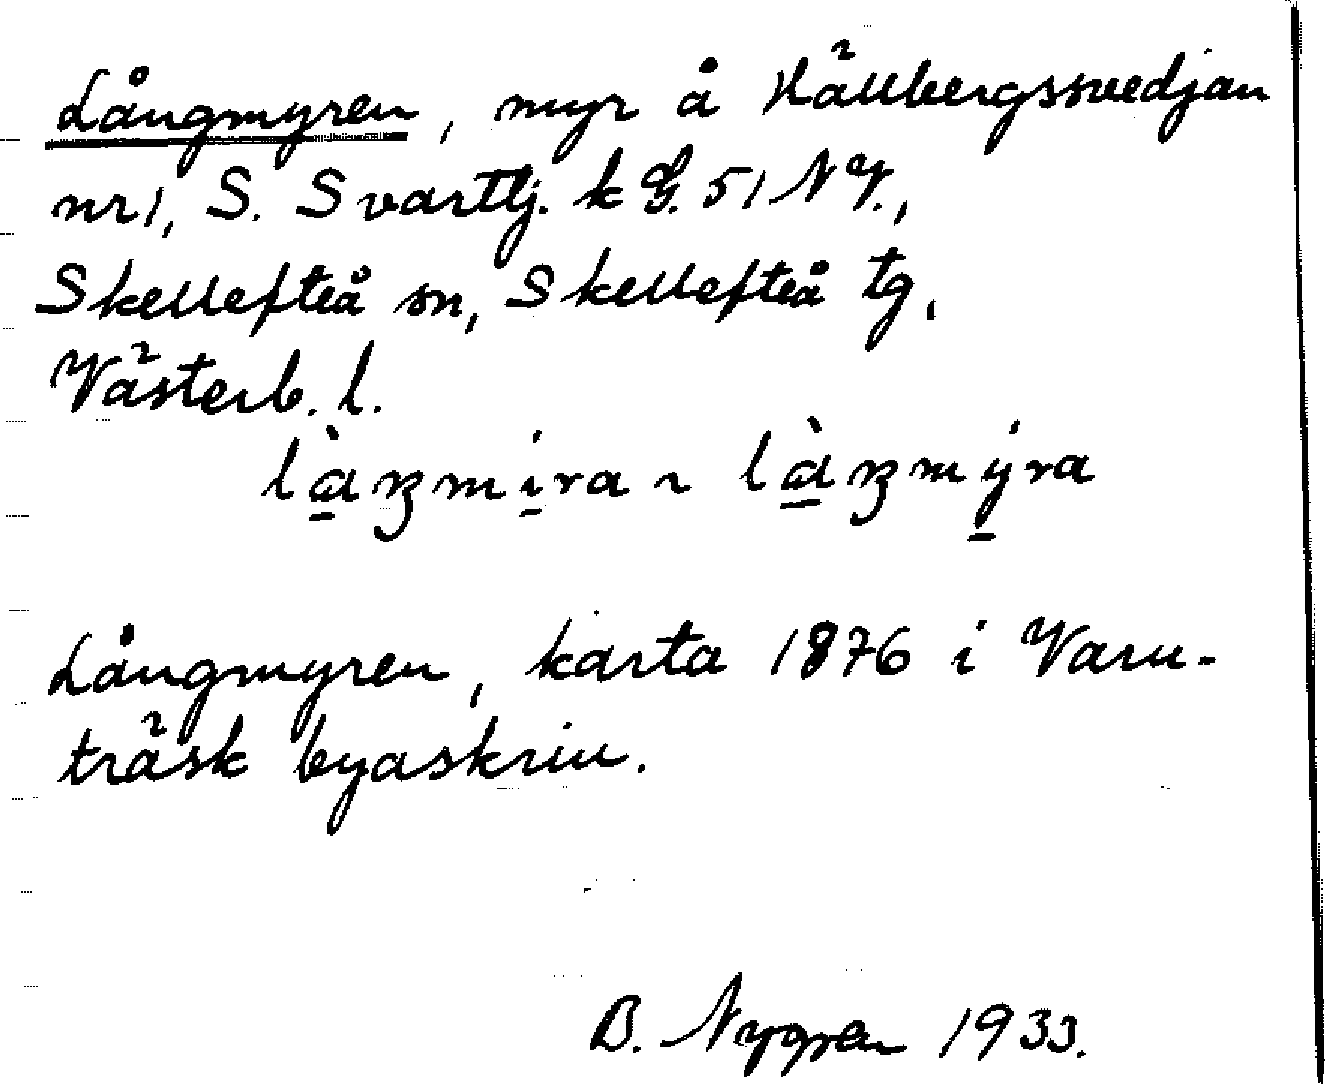 Långmyren, myr å Hällbergssvedjan
nr 1, S. Svartlj. k G. 51 NV.,
Skellefteå sn, Skellefteå tg,
Västerb. l.
làŋmi̱ra ~ làŋmy̱ra
Långmyren, karta 1876 i Varu-
träsk byaskrin.
B. Nygren 1933.